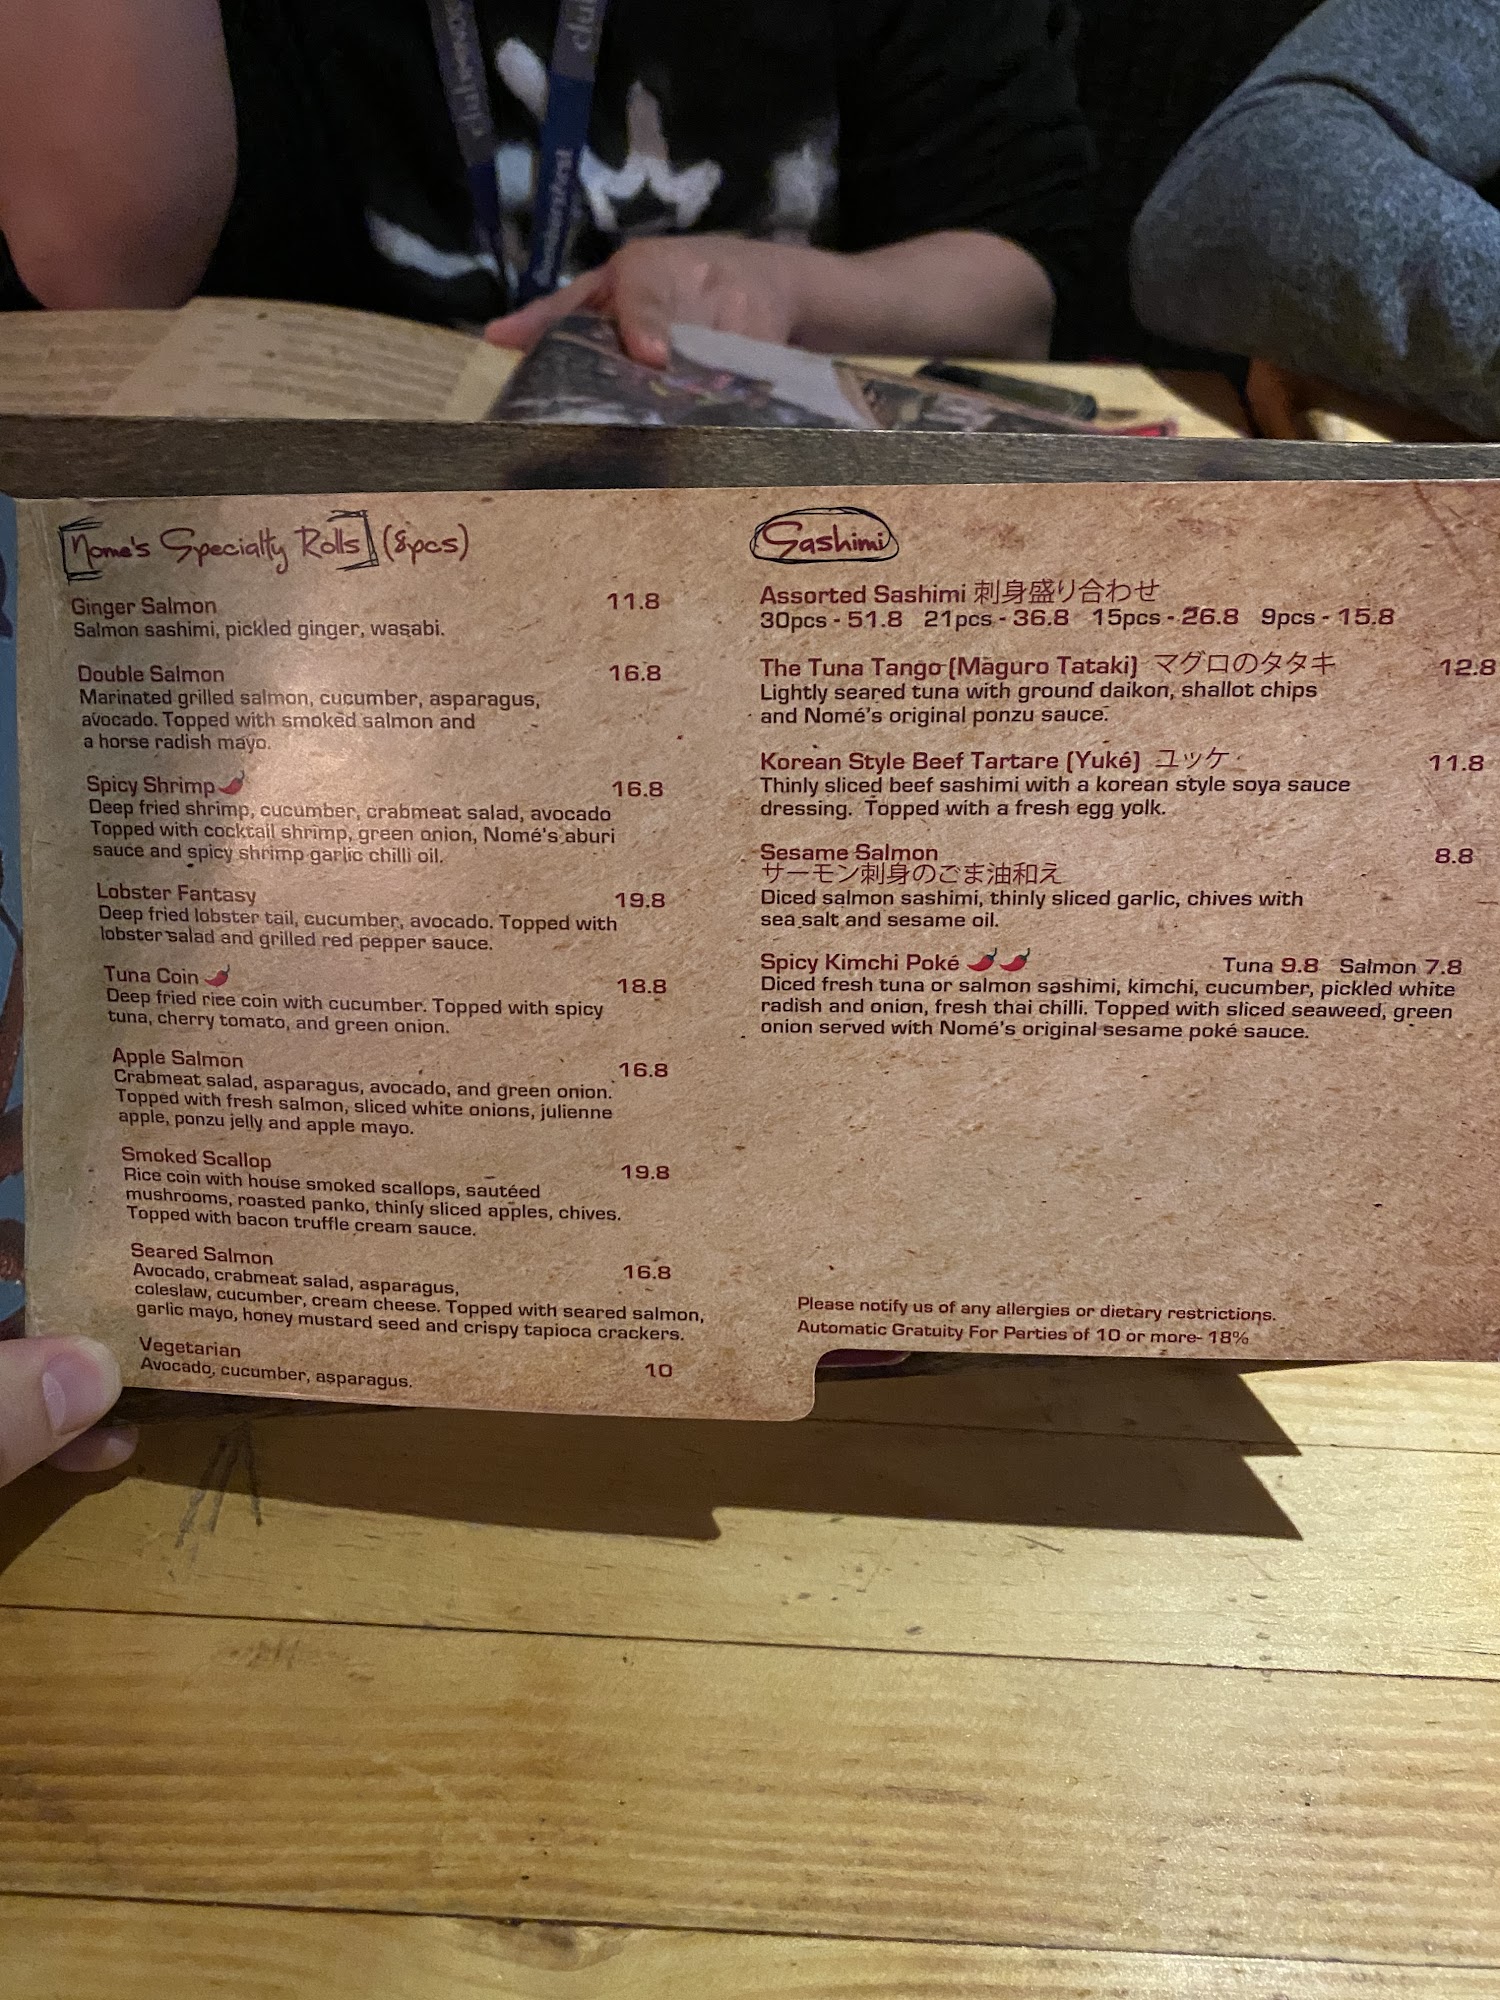 Nome's Specialty Rolls (8pcs)
Ginger Salmon 11.8
Salmon sashimi, pickled ginger, wasabi.
Double Salmon 16.8
Marinated grilled salmon, cucumber, asparagus,
avocado. Topped with smoked salmon and
a horse radish mayo.
Spicy Shrimp 16.8
Deep fried shrimp, cucumber, crabmeat salad, avocado
Topped with cocktail shrimp, green onion, Nomé's aburi
sauce and spicy shrimp garlic chilli oil.
Lobster Fantasy 19.8
Deep fried lobster tail, cucumber, avocado. Topped with
lobster salad and grilled red pepper sauce.
Tuna Coin 18.8
Deep fried rice coin with cucumber. Topped with spicy
tuna, cherry tomato, and green onion.
Apple Salmon 16.8
Crabmeat salad, asparagus, avocado, and green onion.
Topped with fresh salmon, sliced white onions, julienne
apple, ponzu jelly and apple mayo.
Smoked Scallop 19.8
Rice coin with house smoked scallops, sautéed
mushrooms, roasted panko, thinly sliced apples, chives.
Topped with bacon truffle cream sauce.
Seared Salmon 16.8
Avocado, crabmeat salad, asparagus,
coleslaw, cucumber, cream cheese. Topped with seared salmon,
garlic mayo, honey mustard seed and crispy tapioca crackers.
Vegetarian 10
Avocado, cucumber, asparagus.
Sashimi
Assorted Sashimi 刺身盛り合わせ
30pcs - 51.8 21pcs - 36.8 15pcs - 26.8 9pcs - 15.8
The Tuna Tango (Maguro Tataki) マグロのタタキ 12.8
Lightly seared tuna with ground daikon, shallot chips
and Nomé's original ponzu sauce.
Korean Style Beef Tartare (Yuké) ユッケ 11.8
Thinly sliced beef sashimi with a korean style soya sauce
dressing. Topped with a fresh egg yolk.
Sesame Salmon 8.8
サーモン刺身のごま油和え
Diced salmon sashimi, thinly sliced garlic, chives with
sea salt and sesame oil.
Spicy Kimchi Poké Tuna 9.8 Salmon 7.8
Diced fresh tuna or salmon sashimi, kimchi, cucumber, pickled white
radish and onion, fresh thai chilli. Topped with sliced seaweed, green
onion served with Nomé's original sesame poké sauce.
Please notify us of any allergies or dietary restrictions.
Automatic Gratuity For Parties of 10 or more- 18%